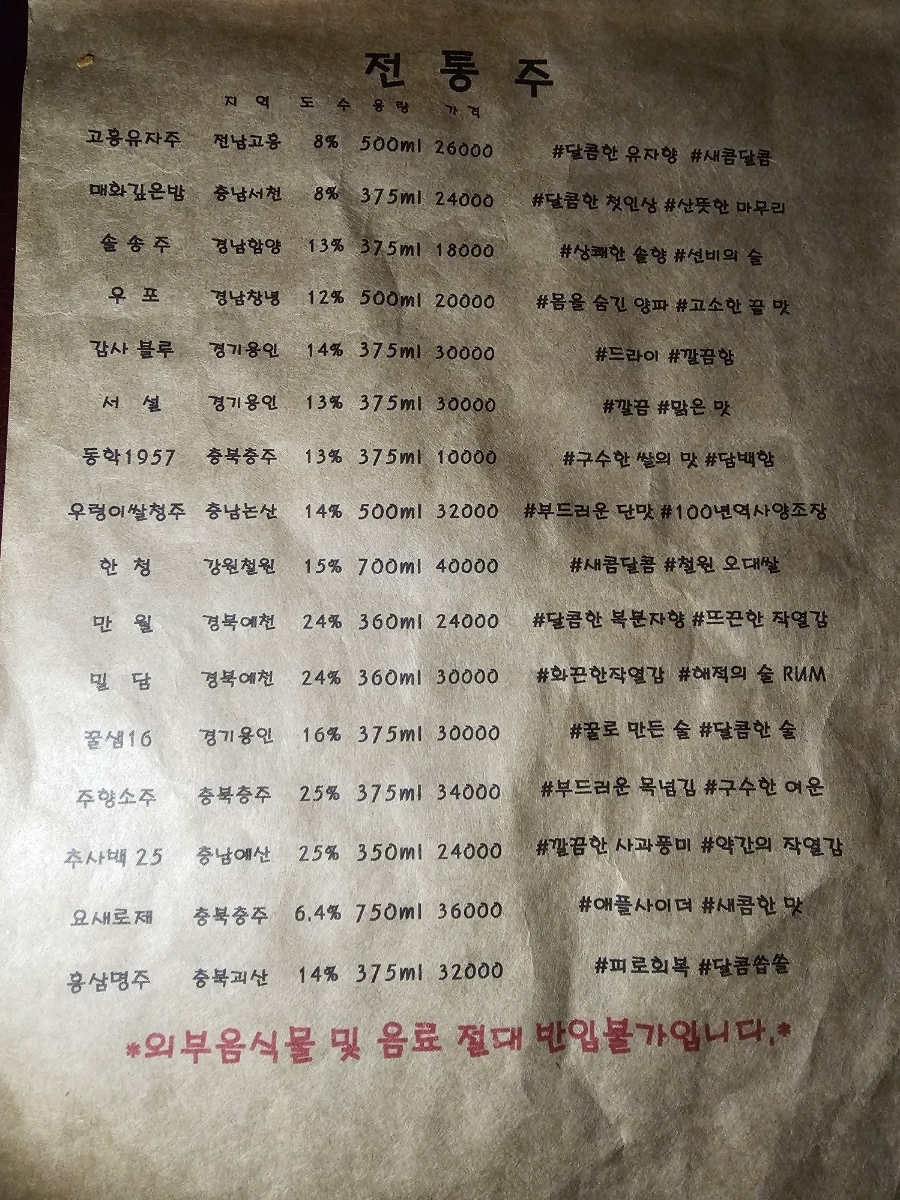 전 통 주
지 역 도 수 용량 가격
고흥유자주 전남고흥 8% 500ml 26000 #달콤한 유자향 #새콤달콤
매화깊은밤 충남서천 8% 375ml 24000 #달콤한 첫인상 #산뜻한 마무리
솔 송 주 경남함양 13% 375ml 18000 #상쾌한 솔향 #선비의 술
우 포 경남창녕 12% 500ml 20000 #몸을 숨긴 양파 #고소한 끝 맛
감사 블루 경기용인 14% 375ml 30000 #드라이 #깔끔함
서 설 경기용인 13% 375ml 30000 #깔끔 #맑은 맛
동학1957 충북충주 13% 375ml 10000 #구수한 쌀의 맛 #담백함
우렁이쌀청주 충남논산 14% 500ml 32000 #부드러운 단맛 #100년역사양조장
한 청 강원철원 15% 700ml 40000 #새콤달콤 #철원 오대쌀
만 월 경북예천 24% 360ml 24000 #달콤한 복분자향 #뜨끈한 작열감
밀 담 경북예천 24% 360ml 30000 #화끈한작열감 #해적의 술 RUM
꿀샘16 경기용인 16% 375ml 30000 #꿀로 만든 술 #달콤한 술
주향소주 충북충주 25% 375ml 34000 #부드러운 목넘김 #구수한 여운
추사백 25 충남예산 25% 350ml 24000 #깔끔한 사과풍미 #약간의 작열감
요새로제 충북충주 6.4% 750ml 36000 #애플사이더 #새콤한 맛
홍삼명주 충북괴산 14% 375ml 32000 #피로회복 #달콤씁쓸
*외부음식물 및 음료 절대 반입불가입니다.*